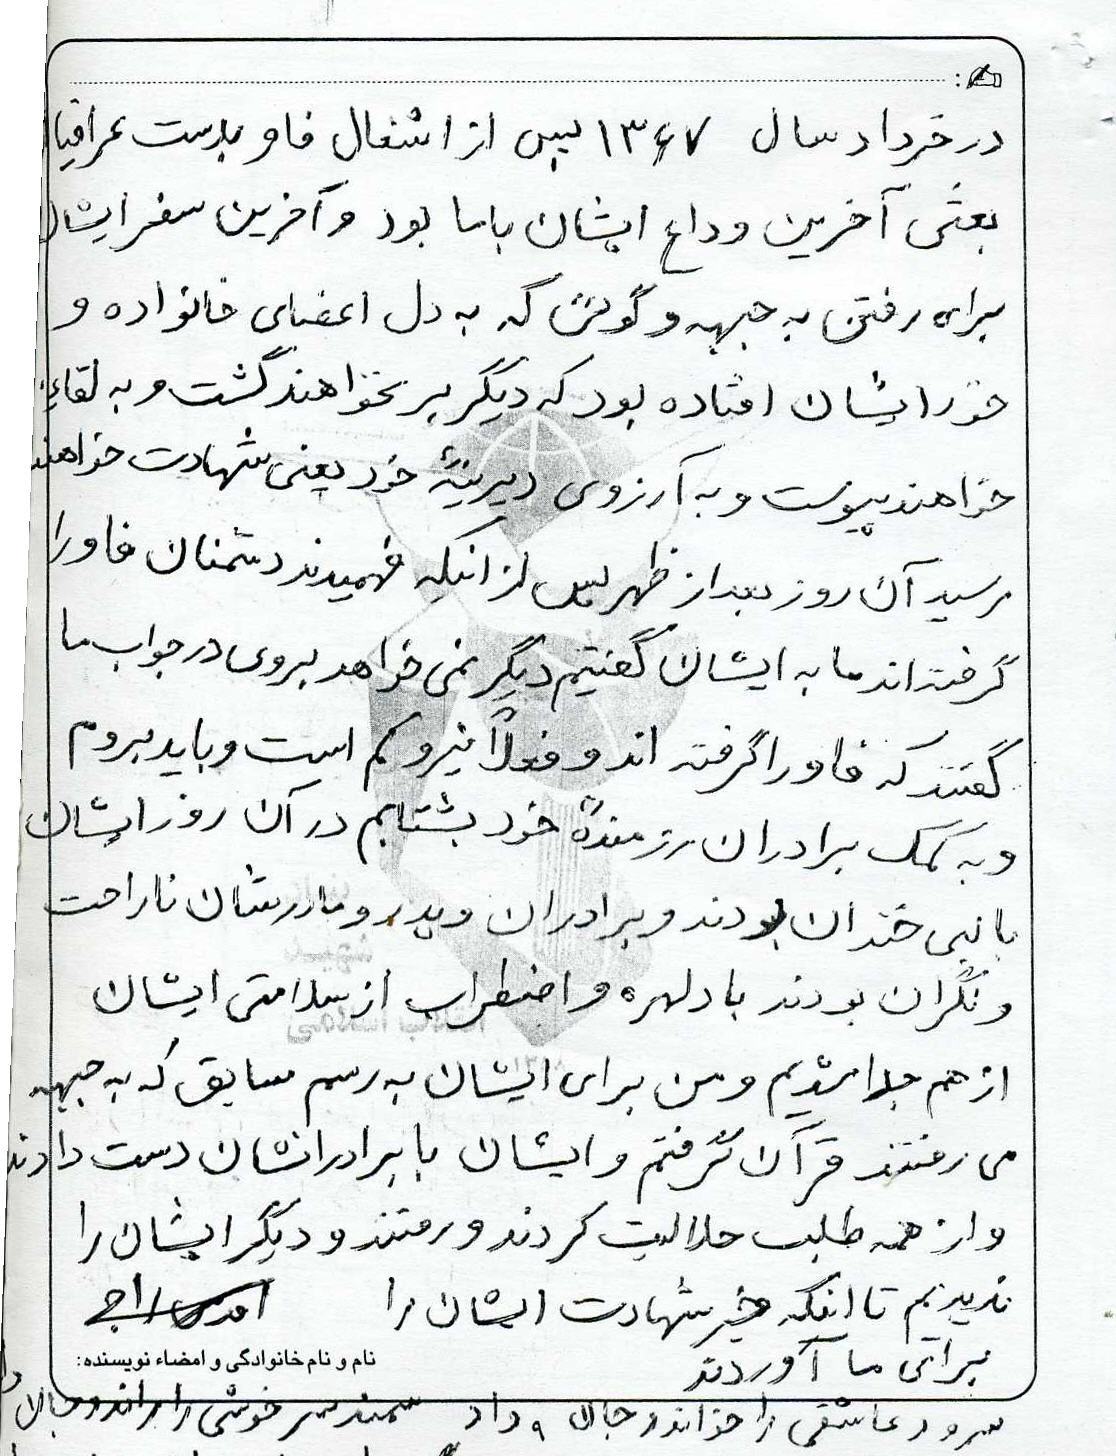 در خرداد سال ۱۳۶۷ پس از اشغال فاو بدست عراقیا
بعثی آخرین وداع ایشان باما بود و آخرین سفر ایشان
برای رفتن به جبهه و گوئی که به دل اعضای خانواده و
خود ایشان افتاده بود که دیگر بر نخواهند گشت و به لقاء
خواهند پیوست و به آرزوی دیرینهٔ خود یعنی شهادت خواهند
رسید آن روز بعد از ظهر پس از اینکه فهمیدند دشمنان فاو را
گرفته اند ما به ایشان گفتیم دیگر نمی خواهد بروی در جواب ما
گفتند که فاو را گرفته اند و فعلاً نیرو کم است و باید بروم
و به کمک برادران رزمندهٔ خود بشتابم در آن روز ایشان
با لبی خندان بودند و برادران و پدر و مادرشان ناراحت
و نگران بودند با دلهره و اضطراب از سلامتی ایشان
از هم جدا شدیم و من برای ایشان به رسم سابق که به جبهه
می رفتند قرآن گرفتم و ایشان با برادرانشان دست دادند
و از همه طلب حلالیت کردند و رفتند و دیگر ایشان را
ندیدیم تا اینکه خبر شهادت ایشان را
برای ما آوردند
نام و نام خانوادگی و امضاء نویسنده:
سرود عاشقی را خواند و جان داد سمند سرخوشی را راند و جان